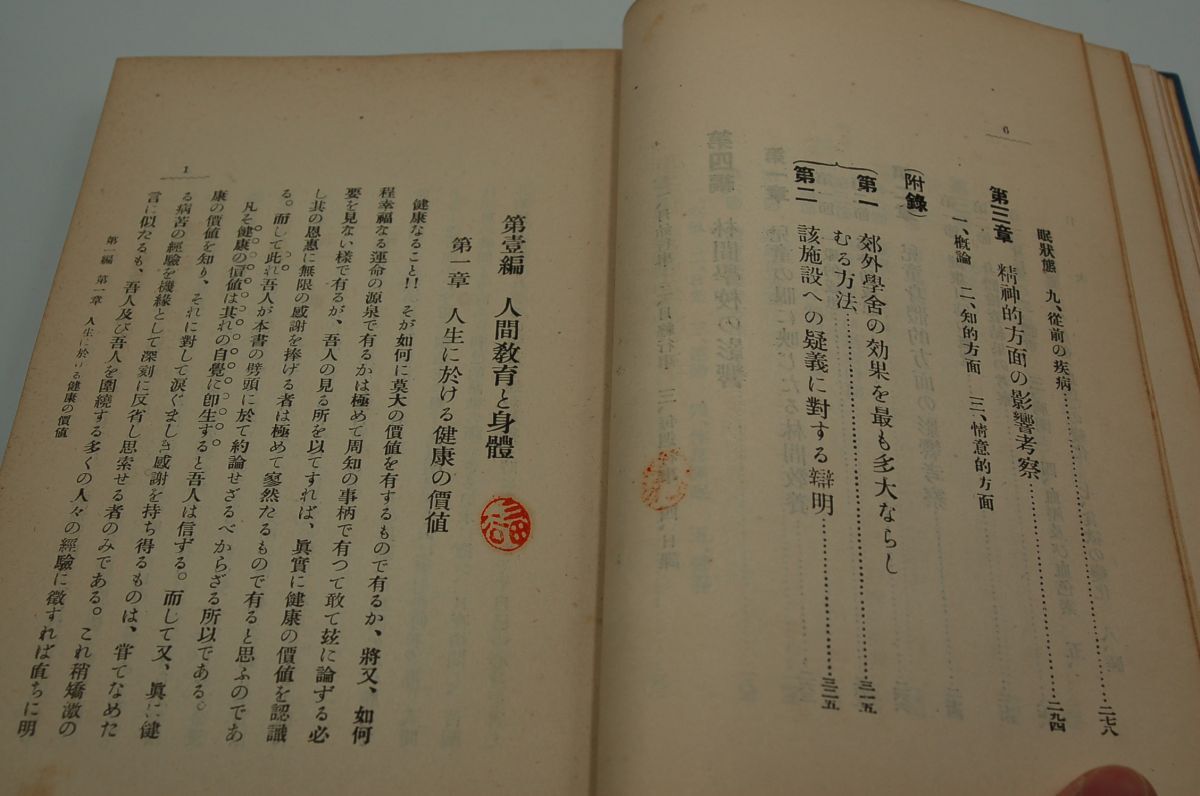 6
眠狀態　九、從前の疾病……二七八
第三章　精神的方面の影響考察……二九四
一、槪論　二、知的方面　三、情意的方面
（附錄）
第一　郊外學舍の効果を最も多大ならし
むる方法……三一五
第二　該施設への疑義に對する辯明……三二五
第壹編　人間敎育と身體
第一章　人生に於ける健康の價値
健康なること!!　そが如何に莫大の價値を有するもので有るか、將又、如何
程幸福なる運命の源泉で有るかは極めて周知の事柄で有つて敢て玆に論ずる必
要を見ない樣で有るが、吾人の見る所を以てすれば、眞實に健康の價値を認識
し其の恩惠に無限の感謝を捧げる者は極めて寥然たるもので有ると思ふのであ
る。而して此れ吾人が本書の劈頭に於て約論せざるべからざる所以である。
凡そ健康の價値は其れの自覺に卽生すると吾人は信ずる。而して又、眞に健
康の價値を知り、それに對して淚ぐましき感謝を持ち得るものは、甞てなめた
る病苦の經驗を機緣として深刻に反省し思索せる者のみである。これ稍矯激の
言に似たるも、吾人及び吾人を圍繞する多くの人々の經驗に徵すれば直ちに明
第一編　第一章　人生に於ける健康の價値
1